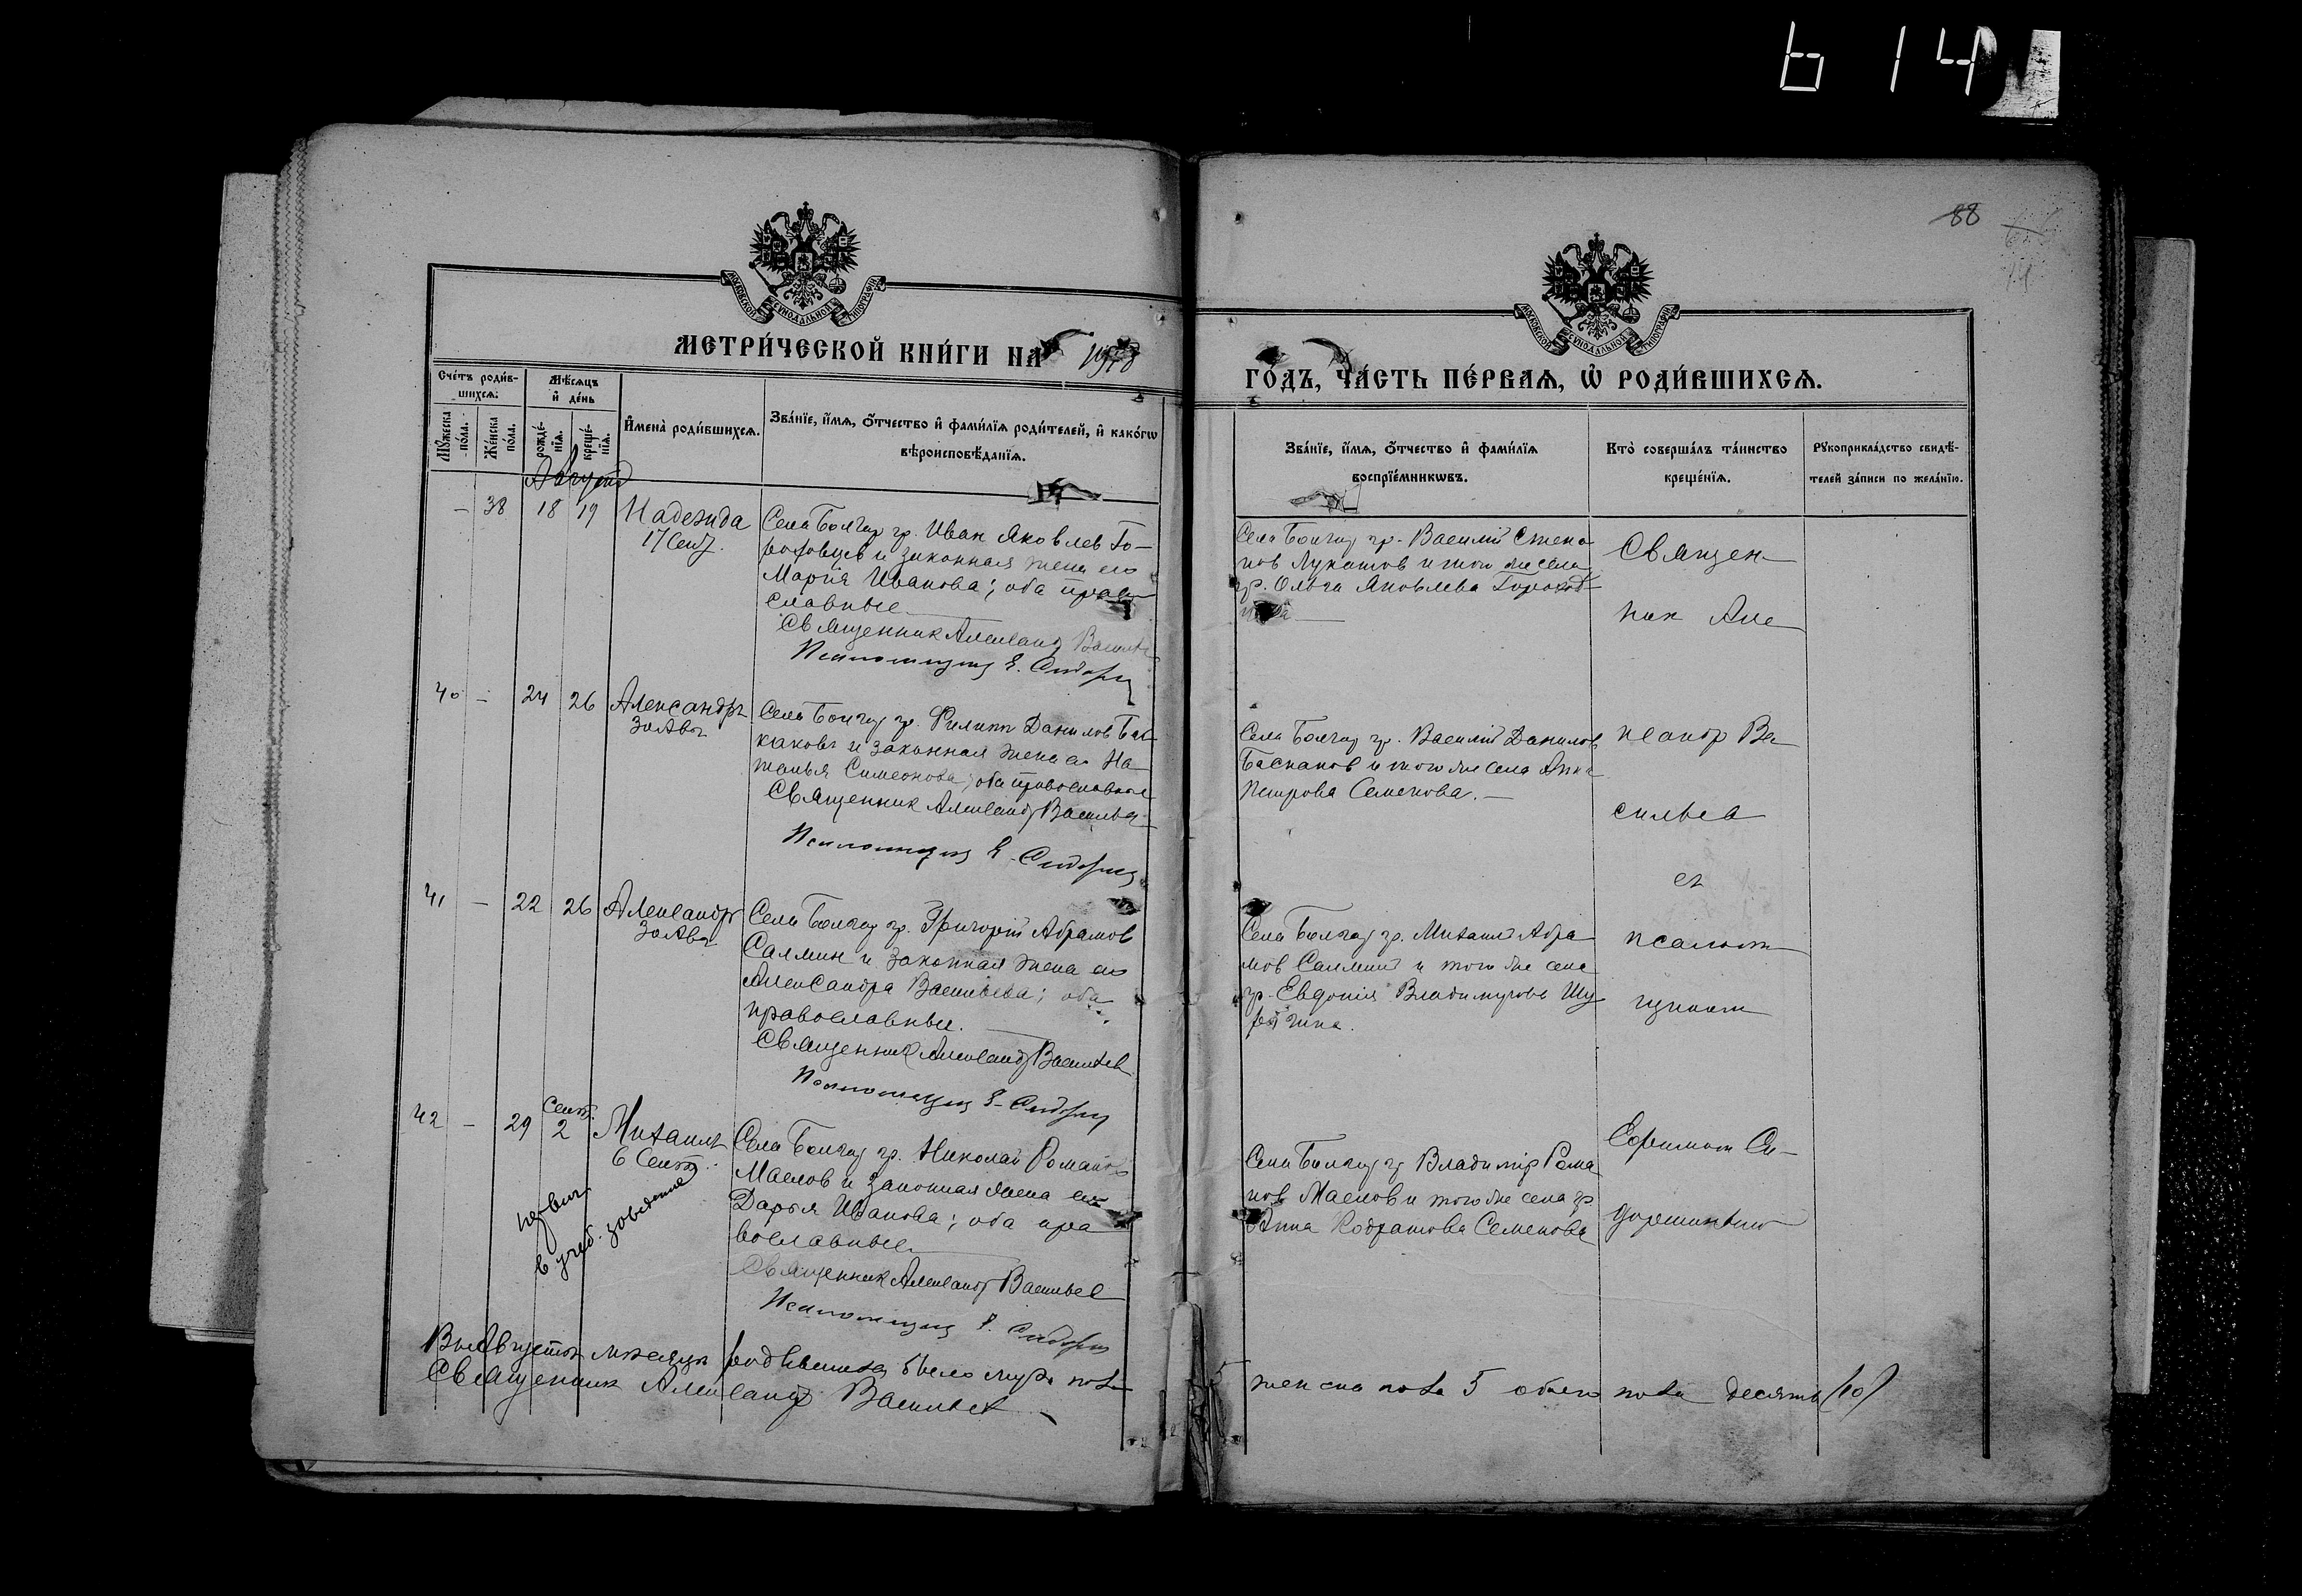 6 14
88
МОСКОВСКОЙ СУНОДАЛЬНОЙ ТИПОГРАФІИ
МОСКОВСКОЙ СУНОДАЛЬНОЙ ТИПОГРАФІИ
МЕТРИ́ЧЕСКОЙ КНИ́ГИ НА
ГО́ДЪ, ЧА́СТЬ ПЕ́РВАѦ, Ѡ҆ РОДИ́ВШИХСѦ.
Сче́тъ роди́в-
шихсѧ:
Мꙋ́жеска
по́ла.
Же́нска
по́ла.
Мѣ́сѧцъ
и҆ де́нь
рожде́-
нїѧ.
креще́-
нїѧ.
И҆мена̀ роди́вшихсѧ.
Зва́нїе, и҆́мѧ, ѻ҆́тчество и҆ фами́лїѧ роди́телей, и҆ како́гѡ
вѣроисповѣ́данїѧ.
Зва́нїе, и҆́мѧ, ѻ҆́тчество и҆ фами́лїѧ
воспрїе́мникѡвъ.
Кто̀ соверша́лъ та́инство
креще́нїѧ.
Рꙋкоприкла́дство свидѣ́-
телей за́писи по жела́нїю.
Август
— 38 18 19 Надежда
17 Сент.
Села Болгар гр. Иван Яковлев Го-
роховцев и законная жена его
Мария Иванова; оба право
славные
Священник Александр Васильев
Псаломщик Е. Сидор
Села Болгар гр. Василий Степа
нов Лукашов и того же села
гр. Ольга Яковлева
Священ-
ник Але
40 — 24 26 Александръ
30 Авг
Села Болгар гр. Филипп Данилов Бас
каковъ и законная жена его На
талья Симеонова; оба православные
Священник Александр Васильев
Псаломщик Е. Сидор
Села Болгар гр. Василий Данилов
Баскаков и того же села Анна
Петрова Семенова. —
ксандр Ва
сильев
съ
41 — 22 26 Александр
30 Авг
Села Болгар гр. Григорий Абрамов
Салмин и законная жена его
Александра Васильева; оба
православные.
Священник Александр Васильев
Псаломщик Е. Сидор
Села Болгар гр. Михаил Абра
мов Салмин и того же села
гр. Евдокия Владимирова Шу
псалом
щиком
42 — 29 Сент. 2 Михаилъ
6 Сент.
в учеб. заведение
Села Болгар гр. Николай Романов
Маслов и законная жена его
Дарья Иванова; оба пра
вославные
Священник Александр Васильев
Псаломщик Е. Сидор
Села Болгар гр Владимир Рома
нов Маслов и того же села гр.
Анна Кодратова Семенова
Ефимом Си-
Въ Августе месяце родившихся было муж. пола 5
женска пола 5 обоего пола десять (10)
Священник Александр Васильев